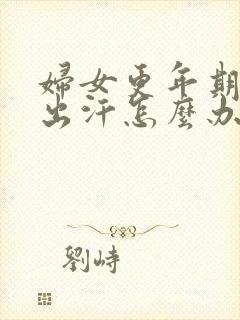 婦女更年期
出汗怎麼办
劉峙